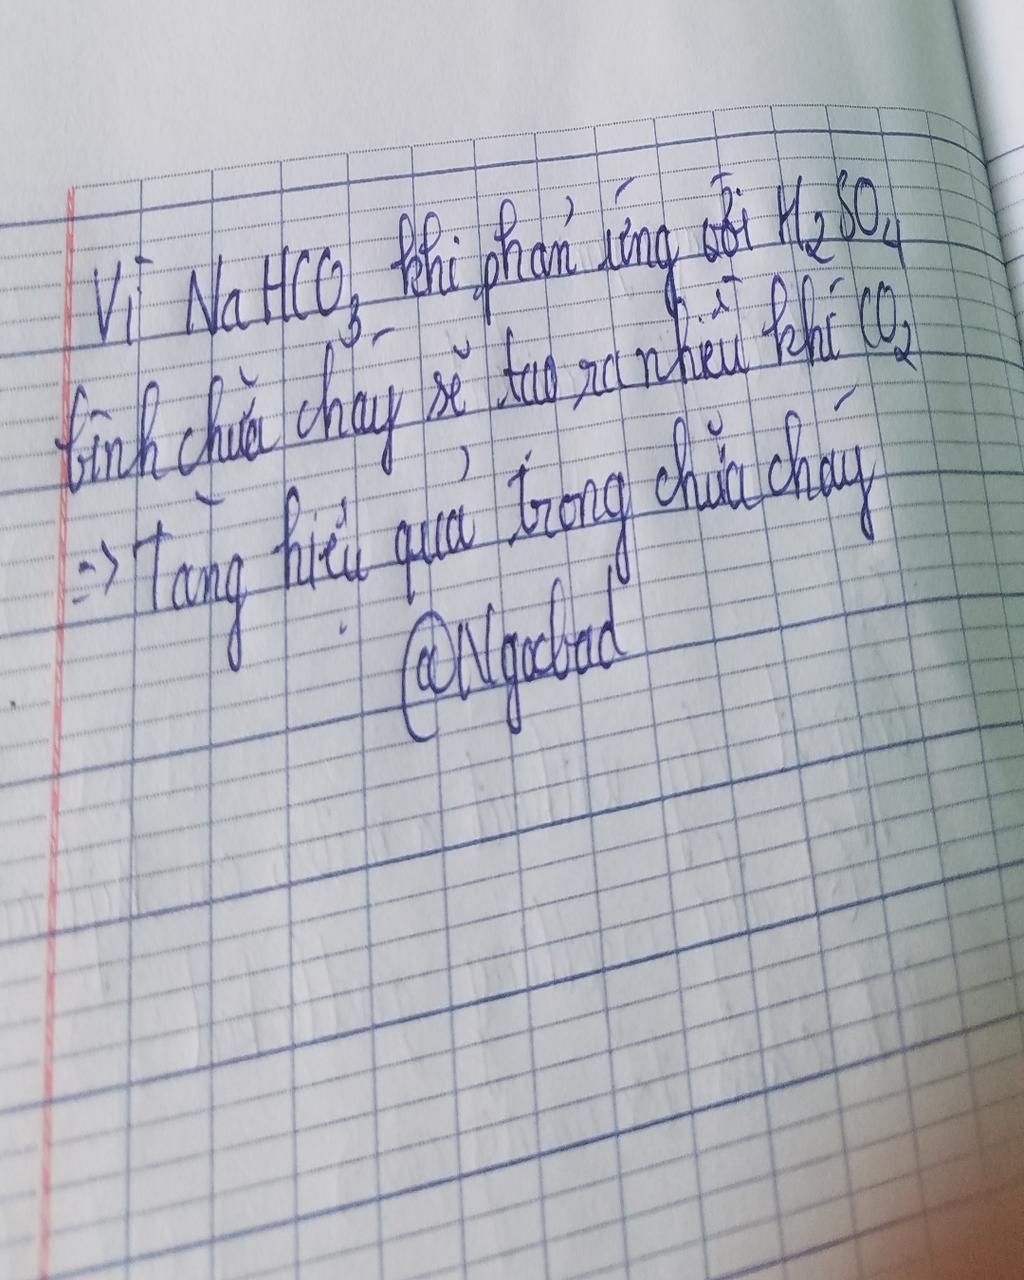 Vì NaHCO₃ khi phản ứng với H₂SO₄
bình chữa cháy sẽ tạo ra nhiều khí CO₂
=> Tăng hiệu quả trong chữa cháy
@Ngocbad